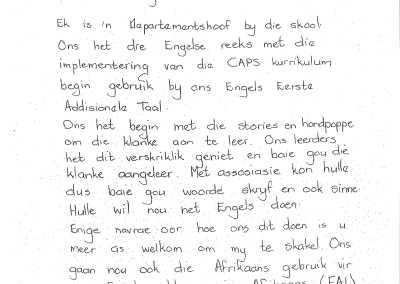 Ek is 'n Departementshoof by die skool.
Ons het die Engelse reeks met die
implementering van die CAPS kurrikulum
begin gebruik by ons Engels Eerste
Addisionele Taal.
Ons het begin met die stories en handpoppe
om die klanke aan te leer. Ons leerders
het dit verskriklik geniet en baie gou die
klanke aangeleer. Met assosiasie kon hulle
dus baie gou woorde skryf en ook sinne.
Hulle wil nou net Engels doen.
Enige navrae oor hoe ons dit doen is u
meer as welkom om my te skakel. Ons
gaan nou ook die Afrikaans gebruik vir
Afrikaans (EAT)